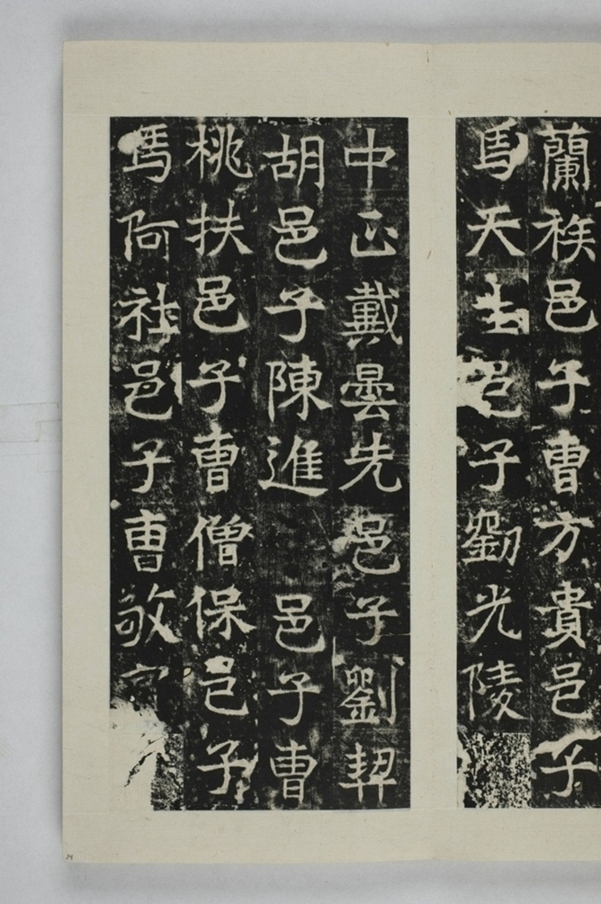 蘭族邑子曹方貴邑子
馬天生邑子劉光陵
中正戴曇先邑子劉契
胡邑子陳進邑子曹
桃扶邑子曹僧保邑子
馬阿社邑子曹敬